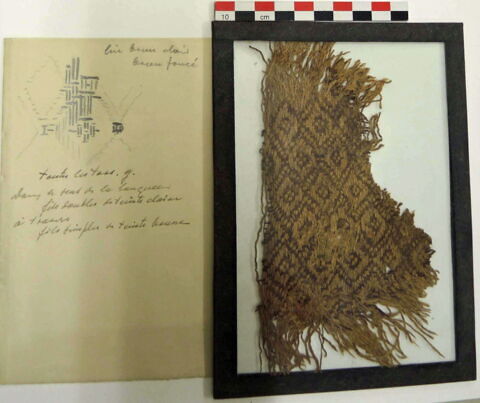 10 cm
lin brun clair
brun foncé
toutes les
Dans le sens de la longueur
fils doubles de teinte claire
à travers
fils simples de teinte brune